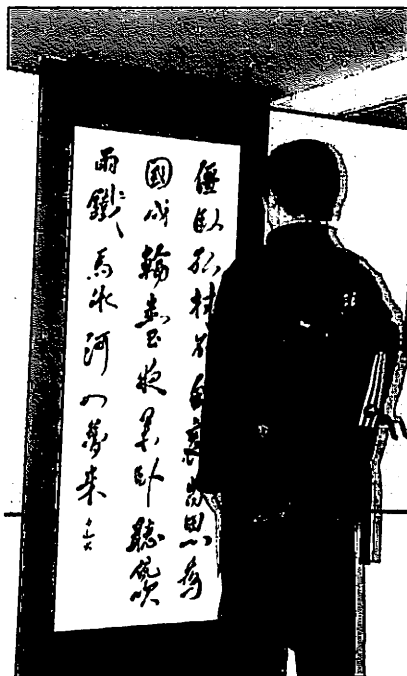 僵臥孤村不自哀尚思為
國戍輪臺夜闌卧聽風吹
雨鐵馬冰河入夢來